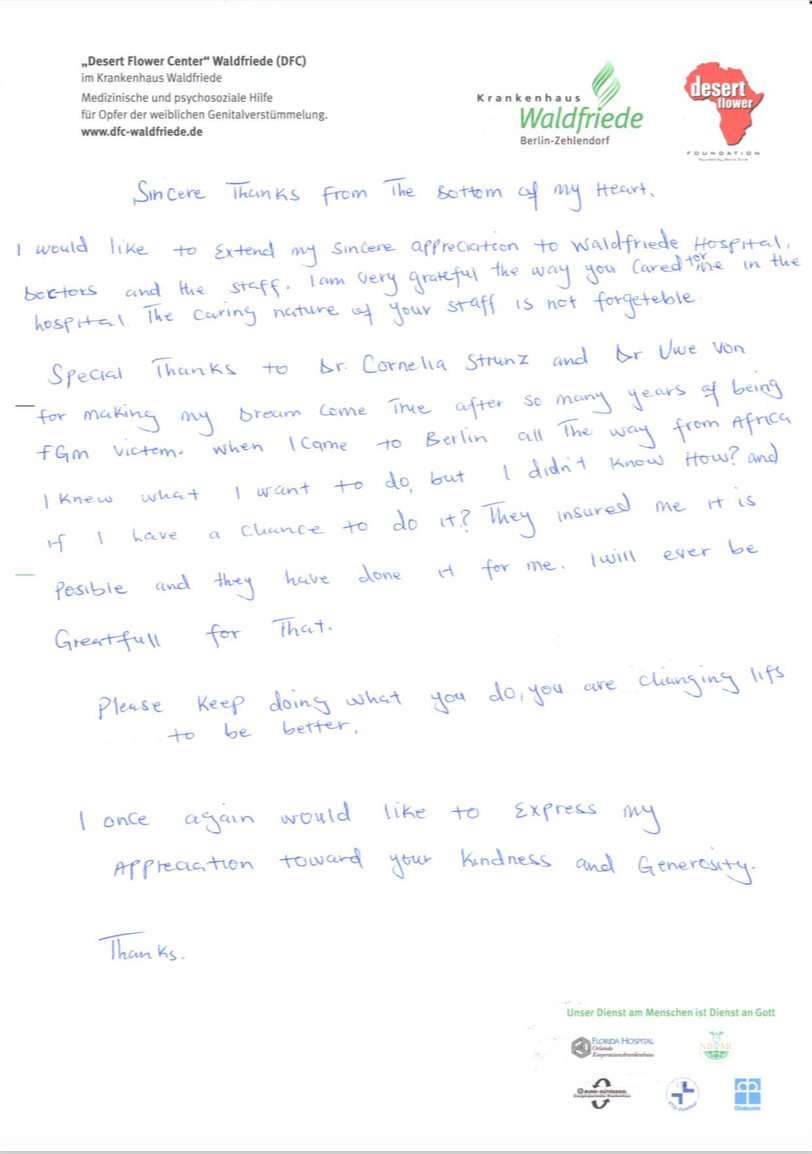 „Desert Flower Center“ Waldfriede (DFC)
im Krankenhaus Waldfriede
Medizinische und psychosoziale Hilfe
für Opfer der weiblichen Genitalverstümmelung.
www.dfc-waldfriede.de
Krankenhaus
Waldfriede
Berlin-Zehlendorf
desert
flower
FOUNDATION
Sincere Thanks from The Bottom of my Heart.
I would like to Extend my Sincere appreciation to Waldfriede Hospital,
Doctors and the staff. I am very grateful the way you Cared for me in the
hospital. The Caring nature of your staff is not forgeteble.
Special Thanks to Dr. Cornelia Strunz and Dr Uwe von
for making my Dream Come True after so many years of being
FGM victem. when I Came to Berlin all The way from Africa
I Knew what I want to do, but I didn't Know How? and
if I have a Chance to do it? They insured me it is
Posible and they have done it for me. I will ever be
Greatfull for That.
Please Keep doing what you do, you are changing lifs
to be better.
I once again would like to Express my
Appreciation toward your Kindness and Generosity.
Thanks.
Unser Dienst am Menschen ist Dienst an Gott
FLORIDA HOSPITAL
Orlando
Kooperationskrankenhaus
Diakonie